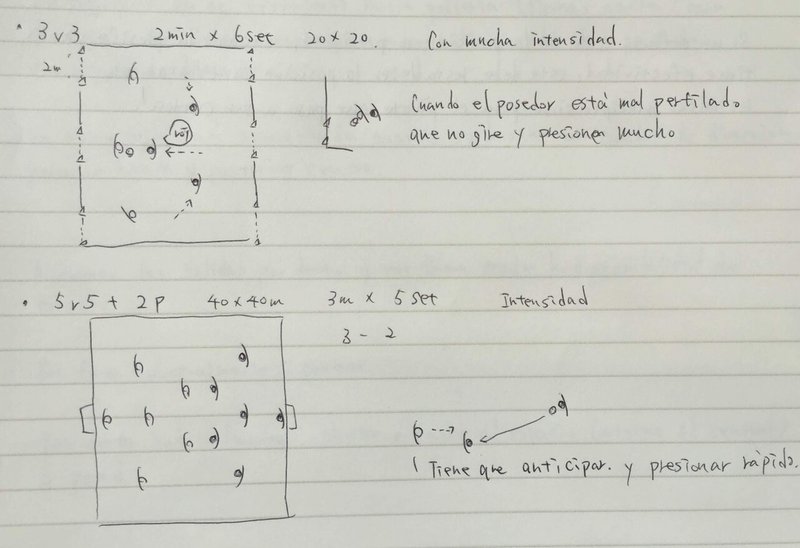 ・ 3 v 3 2min × 6set 20 × 20. Con mucha intensidad.
2m
Cuando el posedor está mal perfilado
que no gire y presionen mucho
・ 5 v 5 + 2P 40 × 40m 3m × 5set Intensidad
3 - 2
Tiene que anticipar. y presionar rápido.